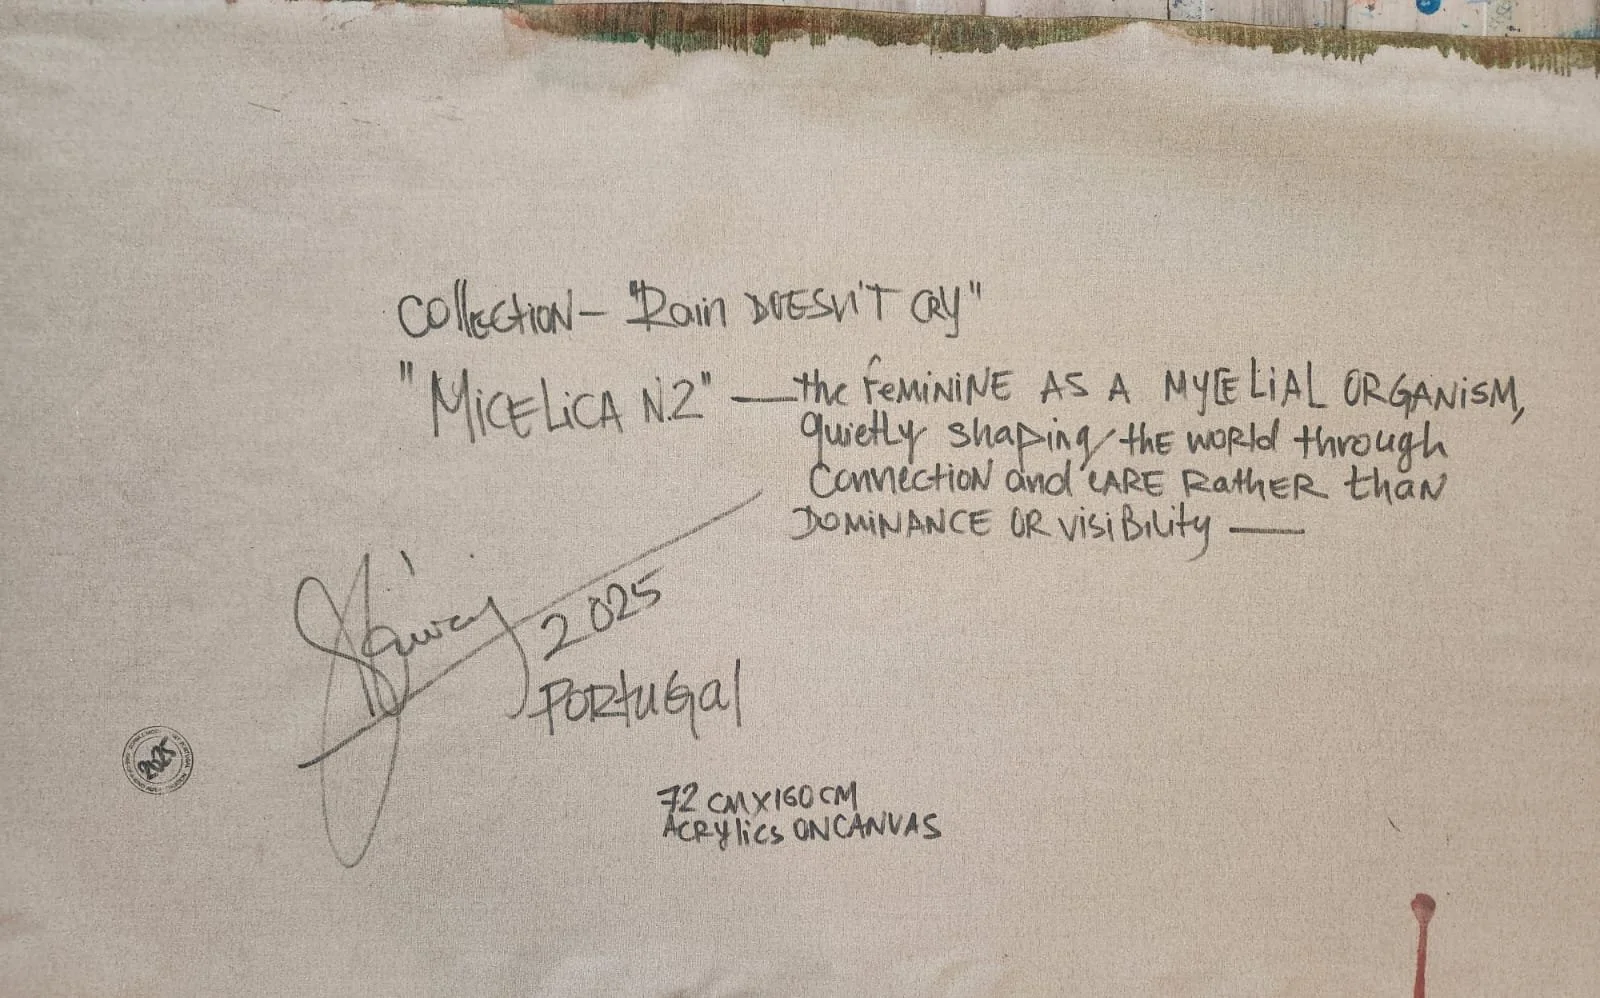 Collection - "Rain DOESN'T CRY"
"MICELICA N.2" — the feminine AS A MYCELIAL ORGANISM,
quietly shaping the world through
Connection and CARE Rather than
DOMINANCE OR visibility —
2025
PORTUGAL
2025
72 CM X 160 CM
ACRYLICS ON CANVAS